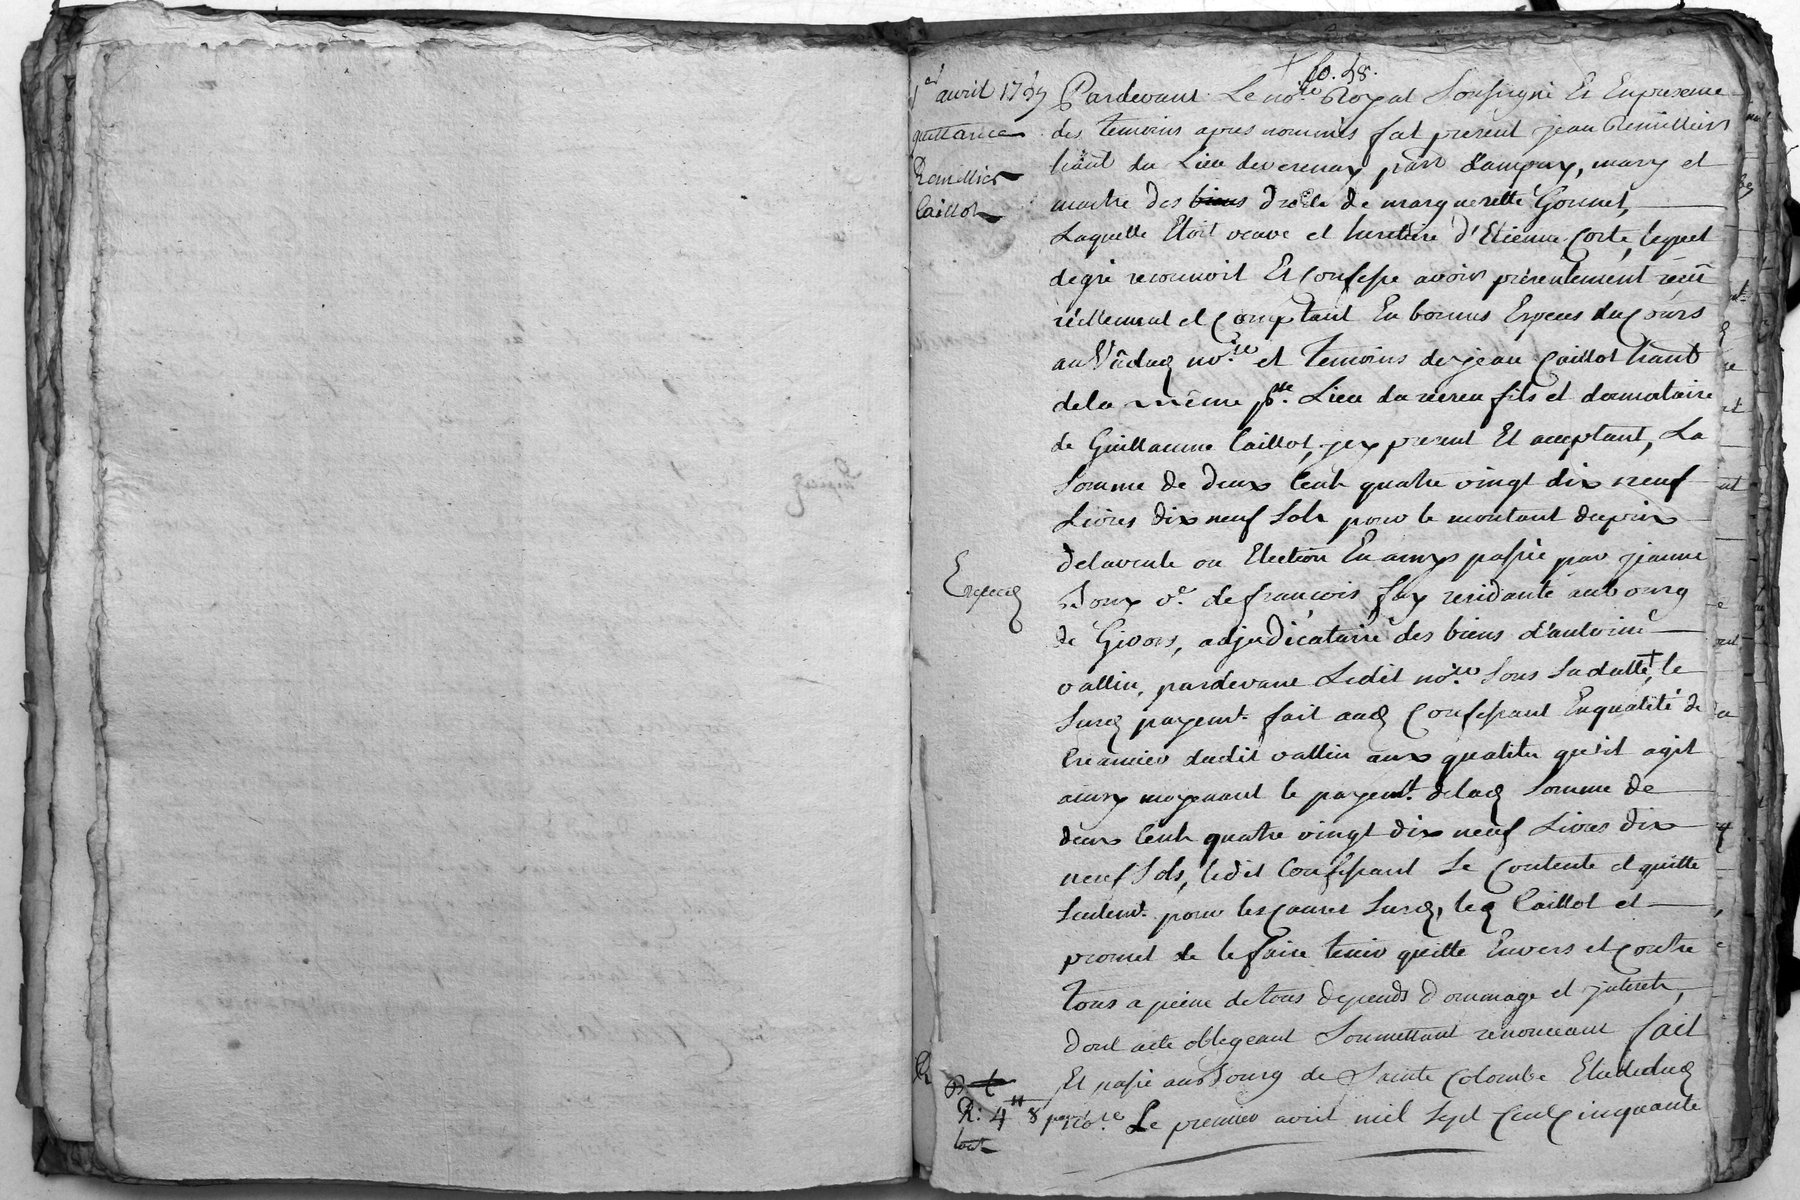 fo. 58.
1er avril 1757
quittance
Remillier
Caillot
Pardevant Le nore Royal Soussigné Et En presence
des temoins apres nommés fut present jean Remillier
hant du Lieu de verenay parr d'ampuy, mary et
maitre des biens droits de marguerette Gonnet,
Laquelle Etoit veuve et heritiere d'Etienne Corte, lequel
de gré reconnoit Et Confesse avoir presentement reçu
réellement et Comptant En bonnes Especes du Cours
au Vû dud nore et temoins de jean Caillot hant
de la même psse. Lieu du fils et donnataire
de Guillaume Caillot, jcy present Et acceptant, La
Somme de deux Cents quatre vingt dix neuf
Livres dix neuf Sols pour le montant du prix
de la vente ou Election En amy passée par jeanne
Joux ve. de francois fay residante au bourg
de Givors, adjudicataire des biens d'antoine
vallin, pardevant Ledit nore Sous Sa datte, + le
Susd payemt. fait aud Confessant En qualité de
Creancier dudit vallin aux qualités qu'il agit
ainsy moyenant le payemt. de lad Somme de
deux Cents quatre vingt dix neuf Livres dix
neuf Sols, ledit Confessant Se Contente et quitte
Seulemt. pour les Causes Susd, led Caillot et
promet de le faire tenir quitte Envers et Contre
tous a peine de tous depends dommage et jnterets,
dont acte obligeant Soumettant renonceant fait
Et passé au bourg de Sainte Colombe Etude dud
nore. Le premier avril mil Sept Cent Cinquante
Expedié
R: 4tt 8
tout